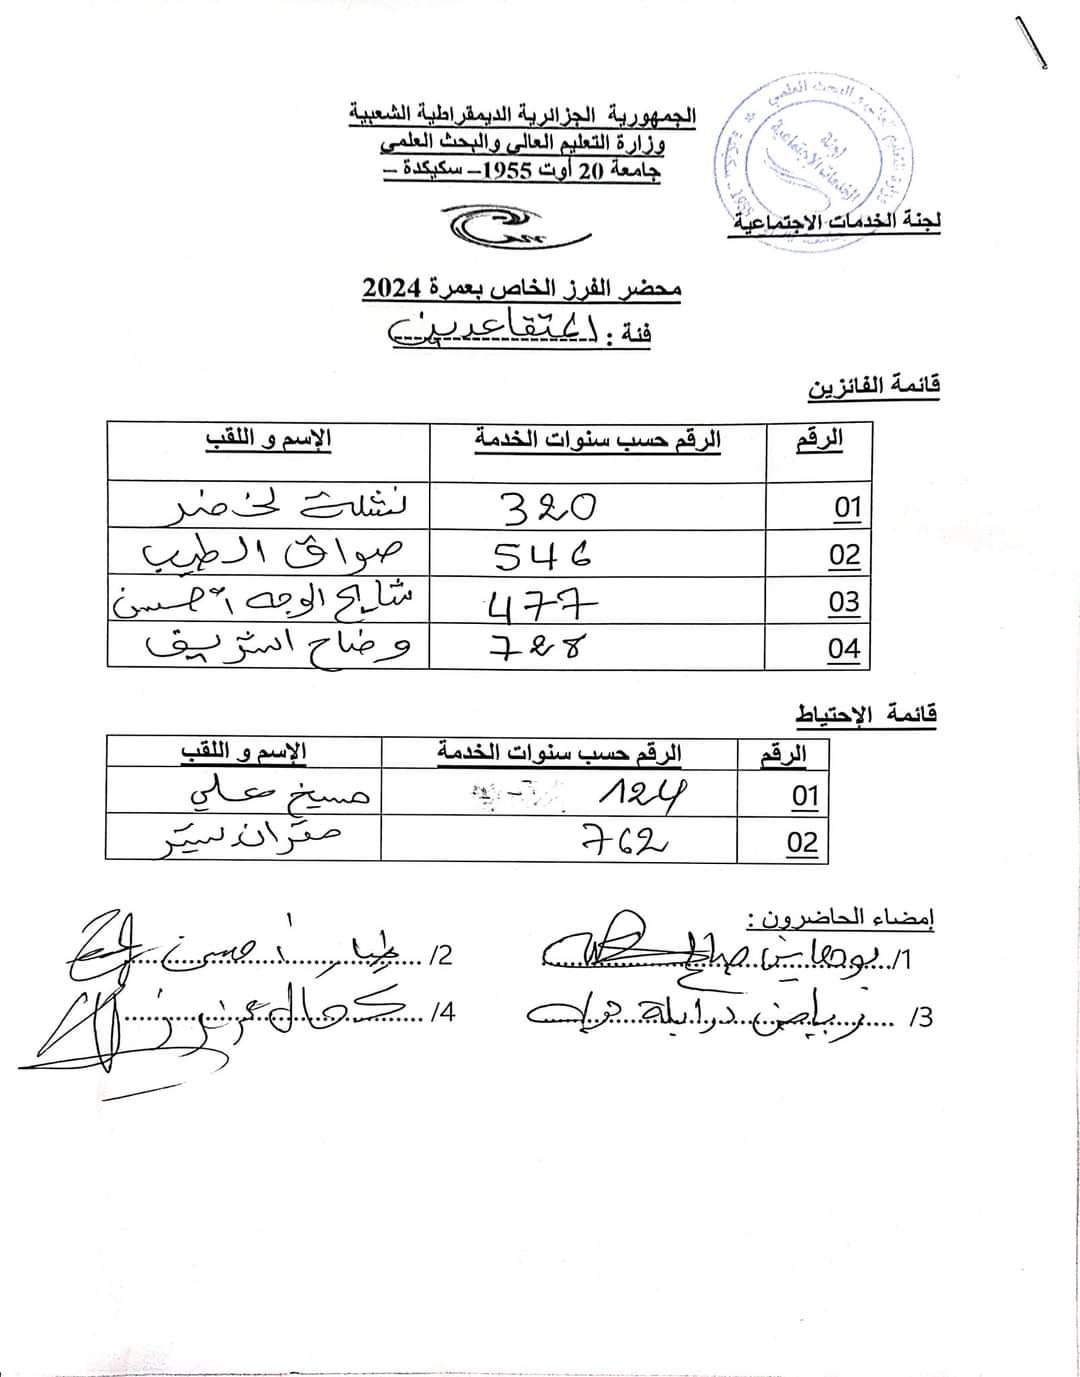 الجمهورية الجزائرية الديمقراطية الشعبية
وزارة التعليم العالي والبحث العلمي
جامعة 20 أوت 1955– سكيكدة –
لجنة الخدمات الاجتماعية
محضر الفرز الخاص بعمرة 2024
فئة : المتقاعدين
قائمة الفائزين
الرقم الرقم حسب سنوات الخدمة الإسم و اللقب
01 320 لخضر
02 546 صواق الطيب
03 477 شايح الوجه أحسن
04 728 وضاح الشريف
قائمة الإحتياط
الرقم الرقم حسب سنوات الخدمة الإسم و اللقب
01 124 علي
02 762 مقران
إمضاء الحاضرون :
1/ صالح
2/ طيار أحسن
3/ رياض درابلة
4/ كمال